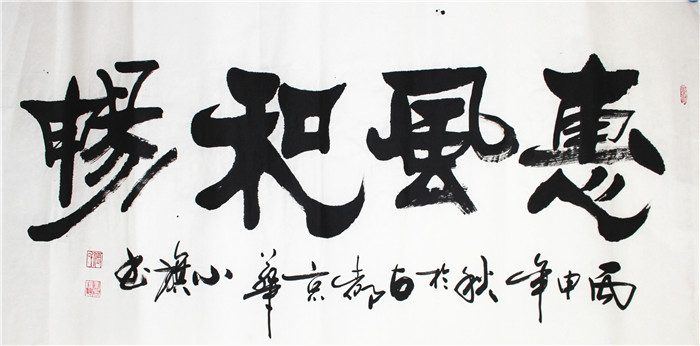 惠風和暢
丙申年秋於古都京華小旗书